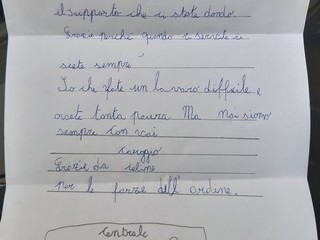 il supporto che ci state dando.
Grazie perché quando vi servite ci
siete sempre
Io che fate un lavoro difficile e
avete tanta paura Ma Noi siamo
sempre con voi
Coraggio
Grazie da celine
per le forze dell'ordine.
Centrale